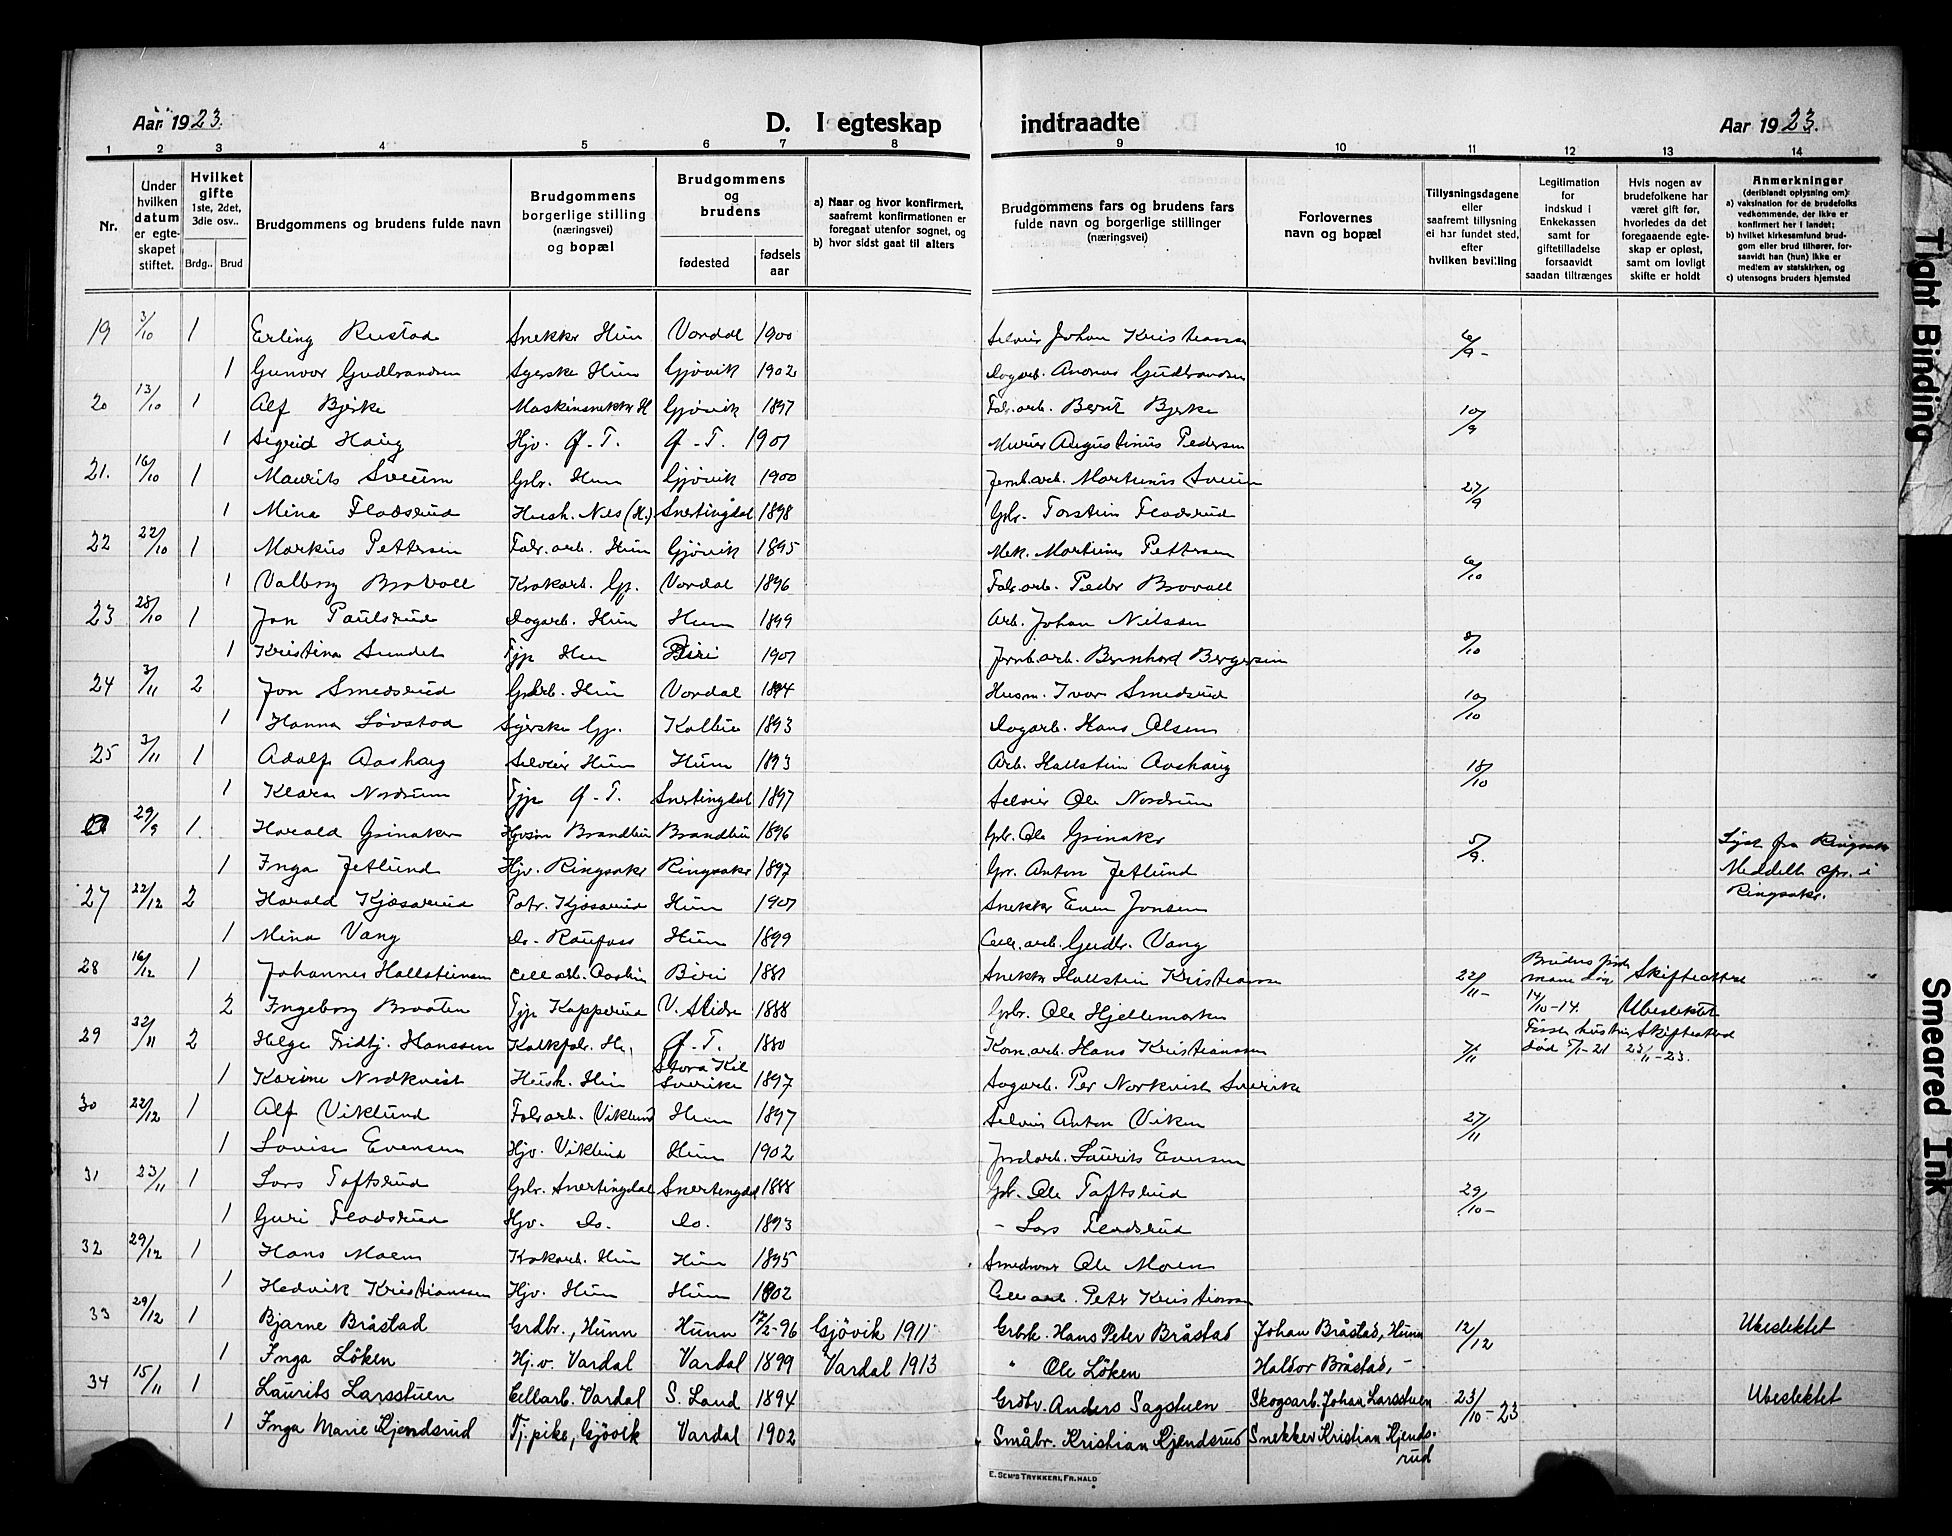 Aar 1923.
D. I egteskap indtraadte
Aar 1923.
1 2 3 4 5 6 7 8 9 10 11 12 13 14
Nr.
Under hvilken datum er egteskapet stiftet.
Hvilket gifte 1ste, 2det, 3die osv..
Brdg.. Brud
Brudgommens og brudens fulde navn
Brudgommens borgerlige stilling (næringsvei) og bopæl
Brudgommens og brudens
fødested
fødsels aar
a) Naar og hvor konfirmert, saafremt konfirmationen er foregaat utenfor sognet, og
b) hvor sidst gaat til alters
Brudgommens fars og brudens fars fulde navn og borgerlige stillinger (næringsvei)
Forlovernes navn og bopæl
Tillysningsdagene eller saafremt tillysning ei har fundet sted, efter hvilken bevilling
Legitimation for indskud i Enkekassen samt for giftetilladelse forsaavidt saadan tiltrænges
Hvis nogen av brudefolkene har været gift før, hvorledes da det foregaaende egteskap er opløst, samt om lovligt skifte er holdt
Anmerkninger (deriblandt oplysning om):
a) vaksination for de brudefolks vedkommende, der ikke er konfirmert her i landet;
b) hvilket kirkesamfund brudgom eller brud tilhører, forsaavidt han (hun) ikke er medlem av statskirken, og
c) utensogns bruders hjemsted
19 3/10 1 Erling Rustad Snekkr Hun Vardal 1900 Selvei Johan Kristiansen 6/9-
1 Gunvor Gudbrandsen Syerske Hun Gjøvik 1902 Dagarb. Andreas Gudbrandsen
20 13/10 1 Alf Bjerke Maskinsnekkr H Gjøvik 1897 Fabr.arb. Bernt Bjerke 10/9
1 Sigrid Haug Hjv. Ø-T. Ø-T. 1901 Murer Augustinus Pedersen
21. 16/10 1 Maurits Sveum Gbr. Hun Gjøvik 1900 Jernb.arb. Martinus Sveum 27/9
1 Mina Fladsrud Hush. Nes (H.) Snertingdal 1898 Gbr. Torstein Fladsrud
22 22/10 1 Markus Pettersen Fabr.arb. Hun Gjøvik 1895 Mek. Martinus Pettersen 6/10
1 Valborg Bravoll Krokarb. Gp. Vardal 1896 Fabr.arb. Peder Bravoll
23 28/10 1 Jon Paulsrud Dagarb. Hun Hun 1899 Arb. Johan Nilsen 8/10
1 Kristina Sundet Tjp Hun Biri 1901 Jernb.arb. Bernhard Bergersen
24 3/11 2 Jon Smedsrud Hun Vardal 1894 Husm. Ivar Smedsrud 10/10
1 Hanna Løvstad Syerske Gp. Kolbu 1893 Dagarb. Hans Olsen
25 3/11 1 Adolf Aashaug Selveier Hun Hun 1893 Arb. Hallstein Aashaug 18/10
1 Klara Nordrum Tjp Ø-T. Snertingdal 1897 Selveier Ole Nordrum
29/9 1. Harald Grinaker Brandbu Brandbu 1896 Gbr. Ole Grinaker 5/9. Lyst fra Ringsaker
1 Inga Jetlund Hjv. Ringsaker Ringsaker 1897 Gbr. Anton Jetlund Meddelt spr. i Ringsaker.
27 22/12 2 Harald Kjøsarud Patr. Kjøsarud Hun 1901 Snekkr Even Jonsen
1 Mina Vang Do- Raufoss Hun 1899 Cell.arb. Gudbr. Vang
28 16/12 1 Johannes Hallsteinsen Cellarb. Biri 1881 Snekkr Hallstein Kristiansen 22/11- Brudens første mann død Skifteattest
2 Ingeborg Braaten Tjp Kapperud V. Slidre 1888 Gbr. Ole Hjellemarken 14/10-14. Ubeslektet
29 1 2 Helge Fridtj. Hanssen Kalkfabr. H. Ø-T. 1880 Kom.arb. Hans Kristianssen 7/11 Første hustru død 5/1-21 Skifteattest 23/11-23.
1 Karine Nordkvist Hush. Hun Stora Kil Sverike 1897 Sagarb. Per Norkvist Sverike
30 22/12 1 Alf Viklund Fabr.arb. Viklund Hun 1897 Selvei Anton Viken 27/11
1 Lovise Evensen Hjv. Viklund Hun 1902 Jordarb. Laurits Evensen
31 23/11 1 Lars Toftsrud Gbr. Snertingdal Snertingdal 1888 Gbr. Ole Toftsrud 29/10-
1 Guri Fladsrud Hjv. Do. Do. 1893 - Lars Fladsrud
32 29/12 1 Hans Moen Krokarb. Hun Hun 1895 Smedmr Ole Moen
1 Hedvik Kristianssen Hjv. Hun Hun 1902 Cellarb. Peter Kristiansen
33 29/12 1 Bjarne Bråstad Grdbr., Hunn Hunn 17/2-96 Gjövik 1911 Grbrk. Hans Peter Bråstad Johan Bråstad, Hunn 12/12 Ubeslektet
1 Inga Löken Hj.v. Vardal Vardal 1899 Vardal 1913 " Ole Löken Haldor Bråstad, -
34 15/11 1 Laurits Larsstuen Cellarb. Vardal S. Land 1894 Grdbr. Anders Sagstuen Skogsarb. Johan Larsstuen 23/10-23 Ubeslektet
1 Inga Marie Kjendsrud Tj.pike, Gjövik Vardal 1902 Småbr. Kristian Kjendsrud Snekker Kristian Kjendsrud
E. SEM'S TRYKKERI, FR.HALD
Tight Binding
Smeared Ink